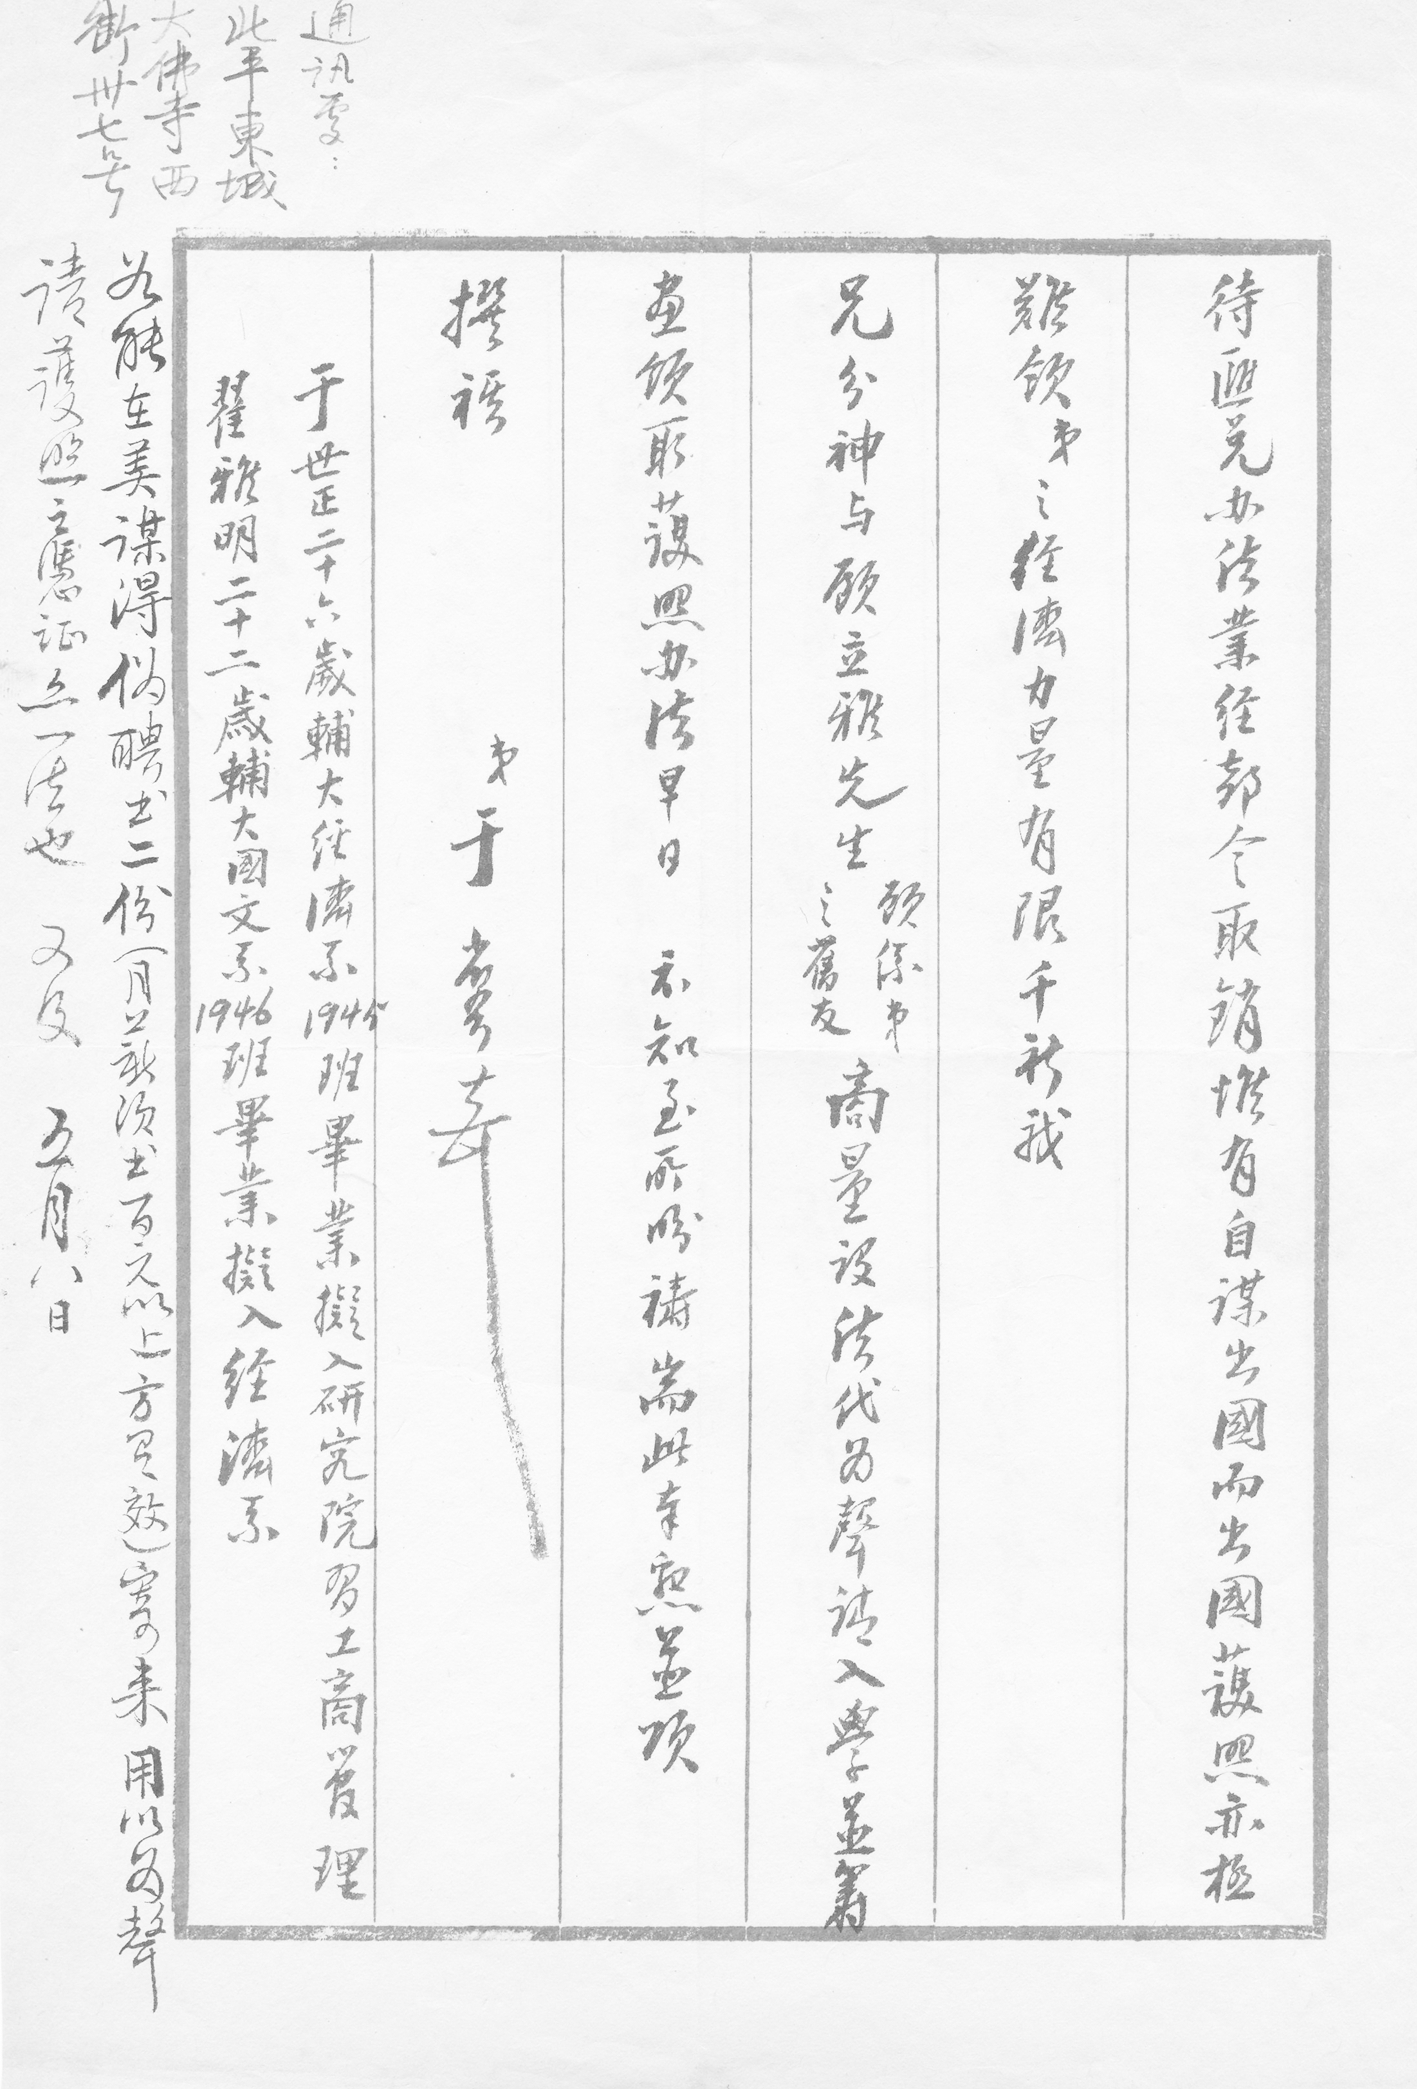 待匯兑办法業经部令取銷惟有自謀出國而出國護照亦極
難領弟之经濟力量有限千祈我
兄分神与顾立雅先生顾係弟之舊友商量设法代为聲请入學並籌
画领取護照办法早日 示知至所盼禱耑此奉恳並颂
撰祺
弟于省吾
于世正二十六歲輔大经濟系1945班畢業擬入研究院習工商管理
翟雅明二十二歲輔大國文系1946班畢業擬入经濟系
若能在美謀得伪聘书二份(月薪须书百元以上方有效)寄来用以为聲
请護照之憑证亦一法也 又及 五月八日
通讯處：
北平東城
大佛寺西
街卅七号